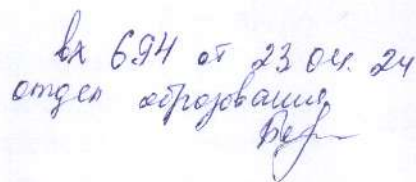 вх 694 от 23.04. 24
отдел образования